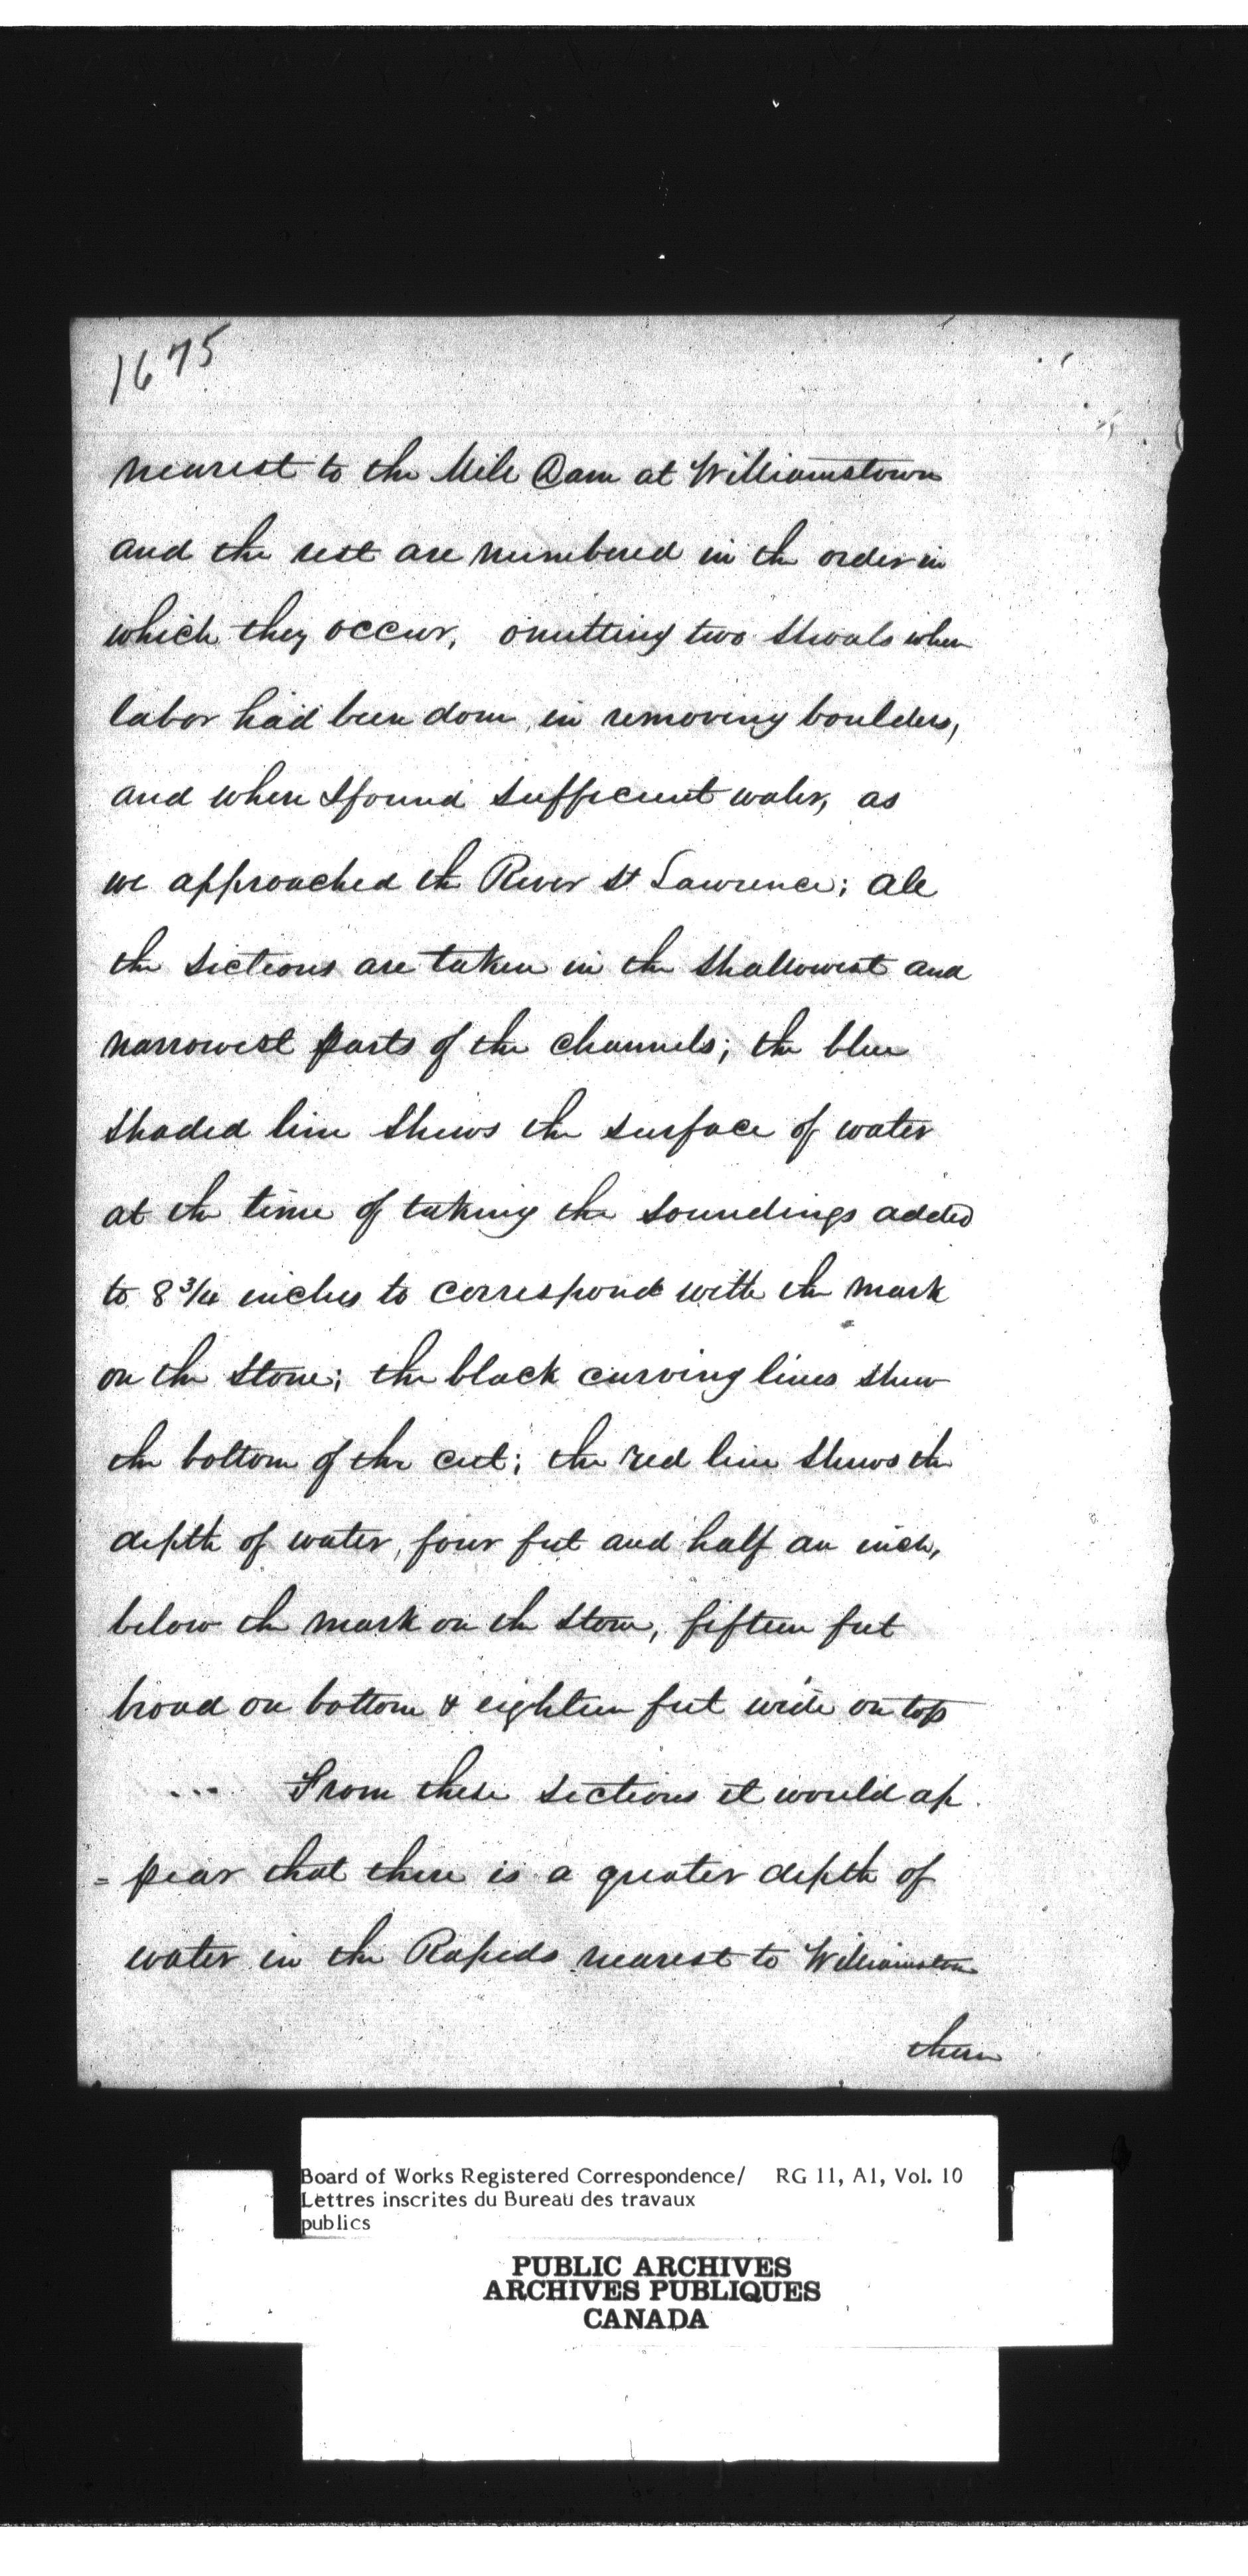 1675
nearest to the Mill Dam at Williamstown
and the rest are numbered in the order in
which they occur, omitting two shoals where
labor had been done in removing boulders,
and where I found sufficient water, as
we approached the River St Lawrence; all
the sections are taken in the shallowest and
narrowest parts of the channels; the blue
shaded line shews the surface of water
at the time of taking the soundings added
to 8 3/4 inches to correspond with the mark
on the stone; the black curving lines shew
the bottom of the cut; the red line shews the
depth of water, four feet and half an inch,
below the mark on the stone, fifteen feet
broad on bottom & eighteen feet wide on top
... From these sections it would ap
= pear that there is a greater depth of
water in the Rapids nearest to Williamstown
than
Board of Works Registered Correspondence/ RG 11, A1, Vol. 10
Lettres inscrites du Bureau des travaux
publics
PUBLIC ARCHIVES
ARCHIVES PUBLIQUES
CANADA